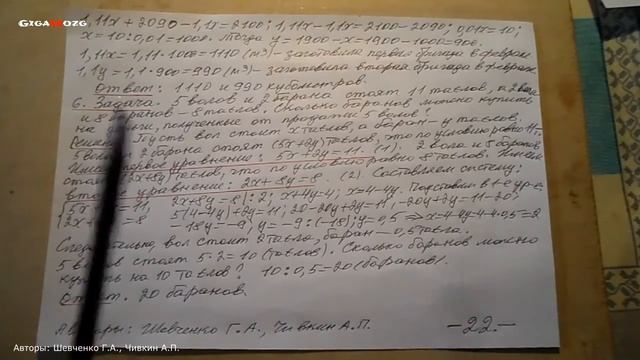 GIGAMOZG
1,11x + 2090 - 1,1x = 2100; 1,11x - 1,1x = 2100 - 2090; 0,01x = 10;
x = 10 : 0,01 = 1000. Тогда y = 1900 - x = 1900 - 1000 = 900.
1,11x = 1,11 · 1000 = 1110 (м3) - заготовила первая бригада в феврале
1,1y = 1,1 · 900 = 990 (м3) - заготовила вторая бригада в феврале
Ответ: 1110 и 990 кубометров.
6. Задача. 5 волов и 2 барана стоят 11 таэлов, а 2 вола
и 8 баранов - 8 таэлов. Сколько баранов можно купить
на деньги, полученные от продажи 5 волов?
Пусть вол стоит x таэлов, а баран - y таэлов.
5 волов и 2 барана стоят (5x+2y) таэлов, что по условию равно 11.
первое уравнение: 5x+2y=11. (1). 2 вола и 8 баранов
стоят (2x+8y) таэлов, что по условию равно 8 таэлов.
второе уравнение: 2x+8y=8. (2). Составляем систему:
5x+2y=11, 2x+8y=8 | : 2; x+4y=4; x=4-4y. Подставим в 1-е ур-е:
2x+8y=8 5(4-4y)+2y=11; 20-20y+2y=11; -20y+2y=11-20;
-18y=-9; y=-9:(-18); y=0,5 ⇒ x=4-4·0,5=2
Следовательно, вол стоит 2 таэла, баран - 0,5 таэла.
5 волов стоят 5·2=10 (таэлов). Сколько баранов можно
купить на 10 таэлов? 10:0,5=20 (баранов).
Ответ. 20 баранов.
Авторы: Шевченко Г.А., Чивкин А.П. -22.-
Авторы: Шевченко Г.А., Чивкин А.П.